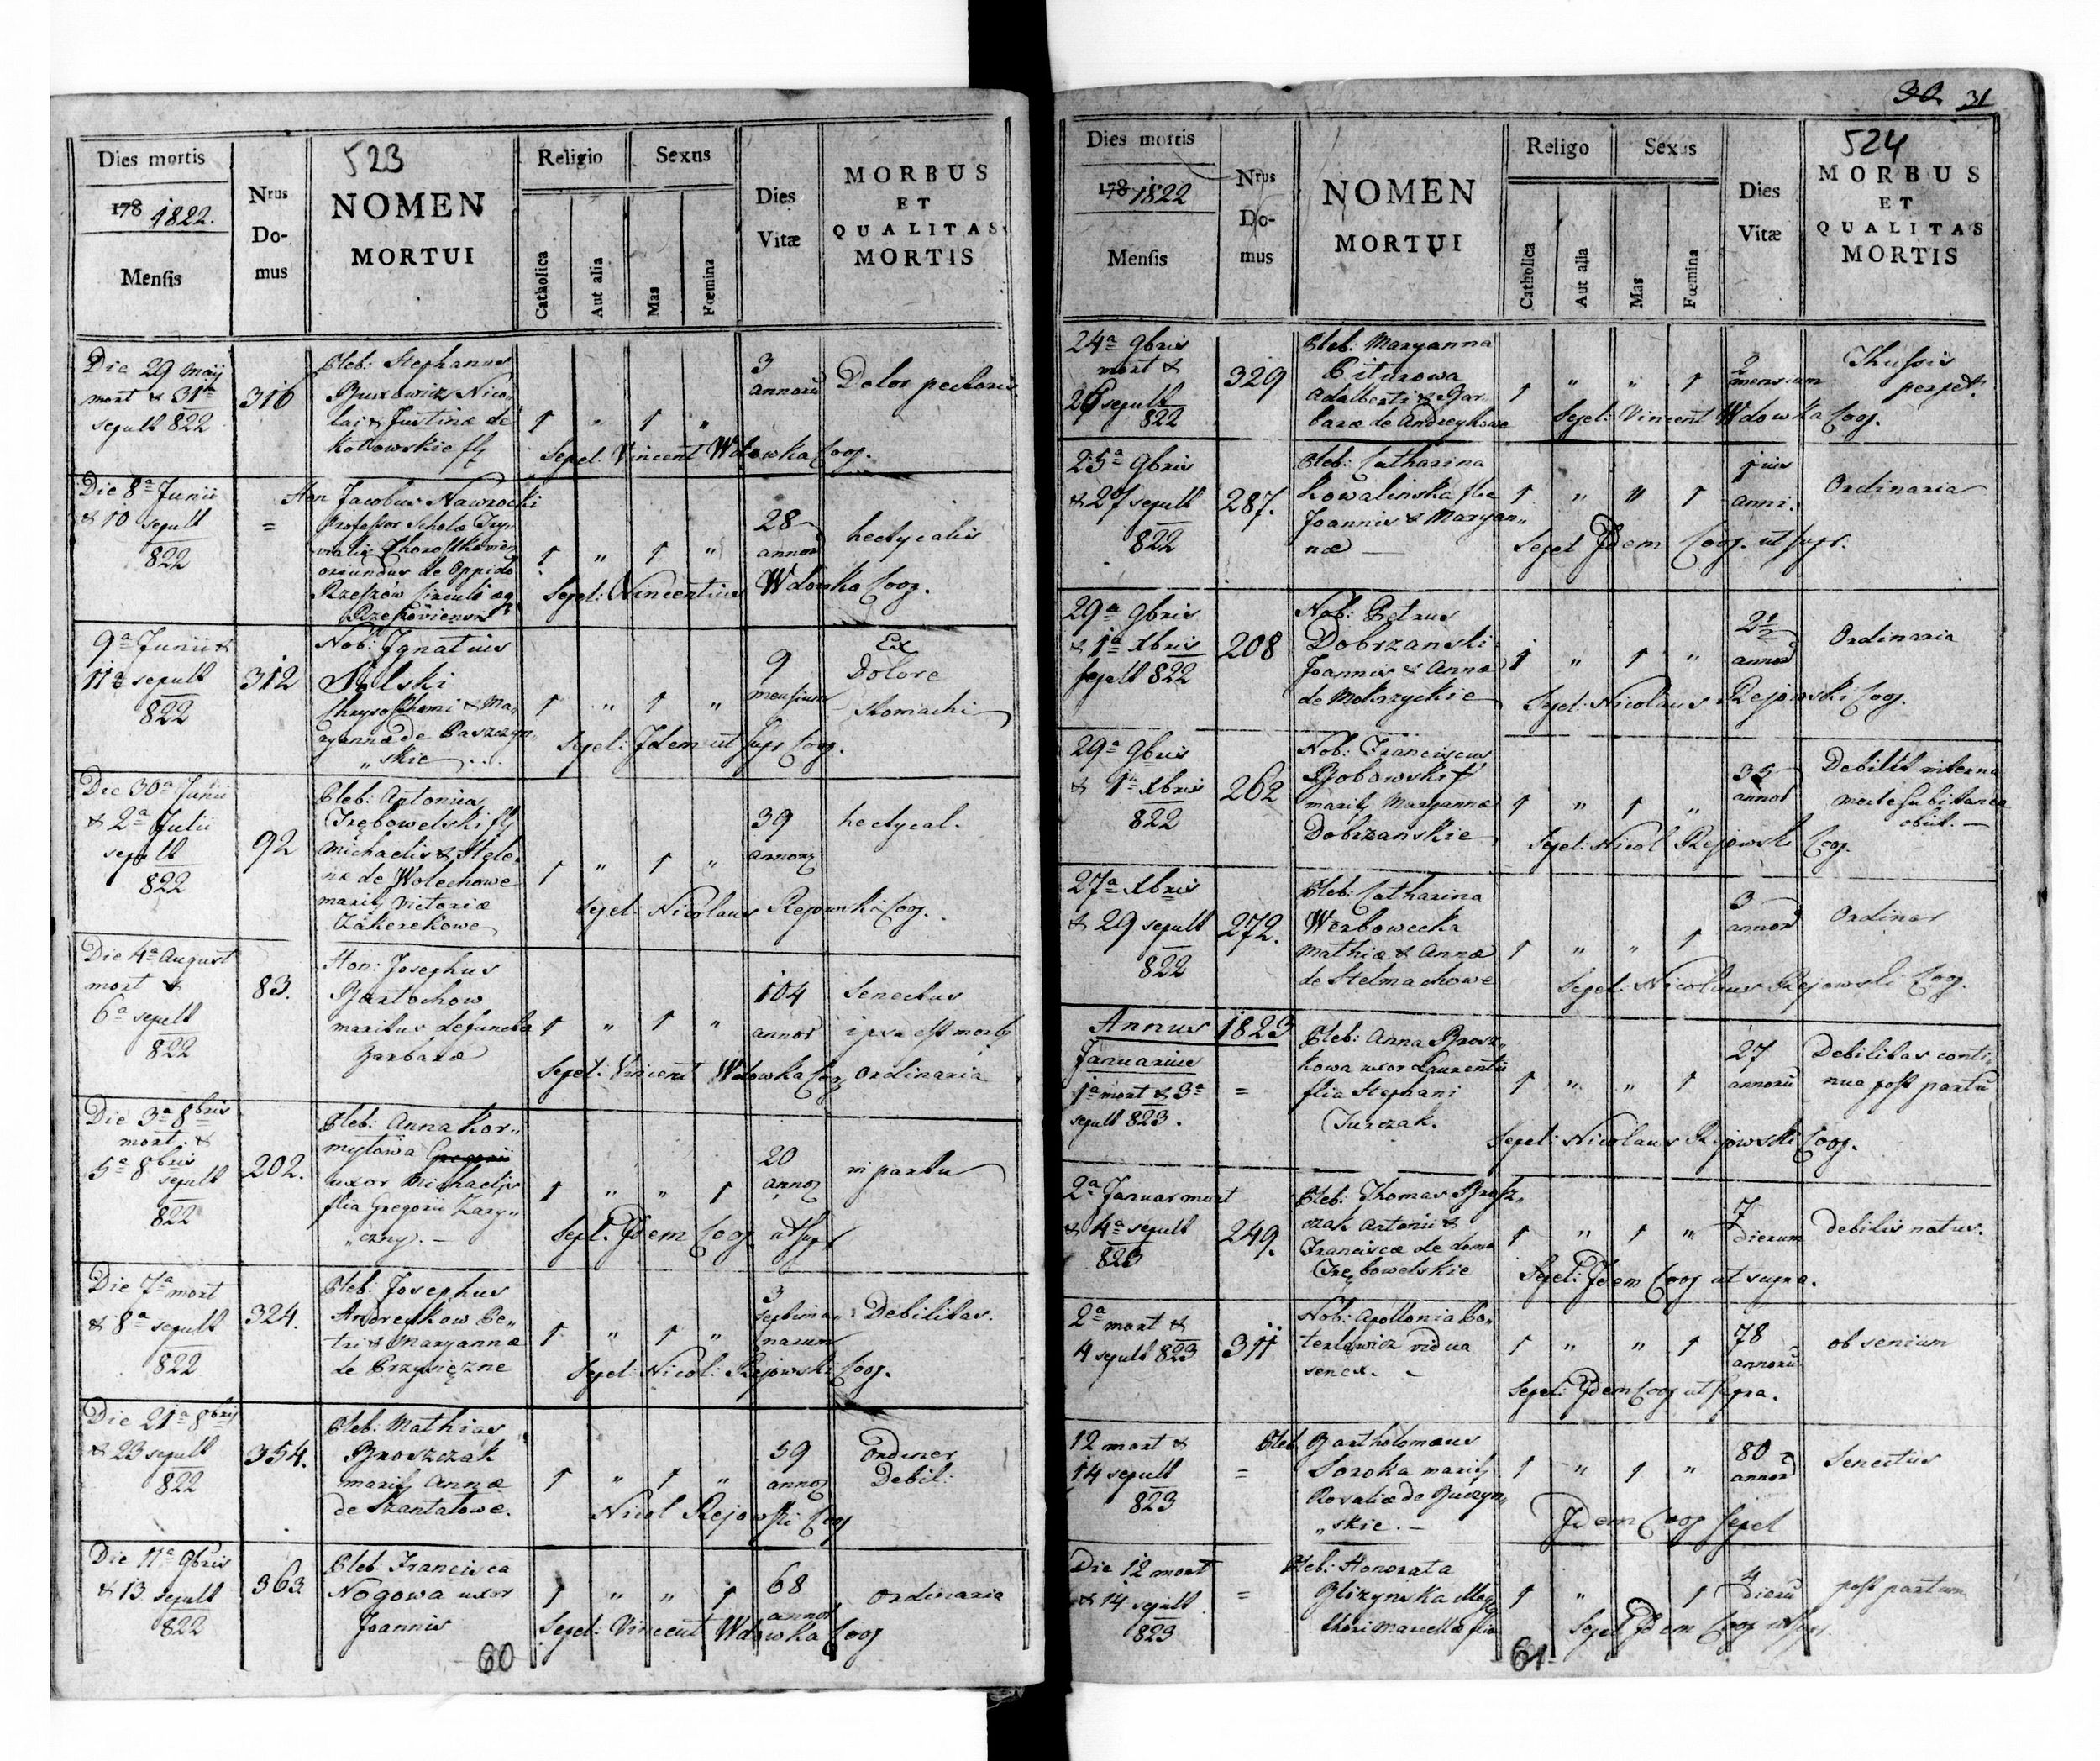 523
Dies mortis
178 1822.
Mensis
Nrus
Do-
mus
NOMEN
MORTUI
Religio
Catholica
Aut alia
Sexus
Mas
Fœmina
Dies
Vitæ
MORBUS
ET
QUALITAS
MORTIS
Die 29 Maij
mort & 31a
sepult 822
316
Pleb: Stephanus
Nico„
lai & Justinæ de
Kotłowskie
1 „ 1 „
3
annorū
Dolor pectoris
Sepel: Vincent Wdowka Coop.
Die 8a Junii
& 10 sepult
822
=
Hon Jacobus Nawrocki
Professor Schola Try„
vialis
oriundus de Oppido
Rzeszów Circuli æq
1 „ 1 „
28
annor
hectycalis
Sepel: Vincentius Wdowka Coop.
9a Junii &
11a sepult
822
312
Nob: Ignatius
& Ma„
ryannæ de Paszczyn„
„skie
1 „ 1 „
9
mensium
Ex
Dolore
stomachi
Sepel: Idem ut supr Coop.
Die 30a Junii
& 2a Julii
sepult
822
92
Pleb: Antonius
Trębowelski
Michaelis & Hele„
næ de Wolochowe
Victoriæ
Zakerekowe
1 „ 1 „
39
annorz
hectycal.
Sepel: Nicolaus Rejowski Coop.
Die 4a August
mort &
6a sepult
822
83.
Hon: Josephus
Bartochow
maritus defuncta
Barbaræ
1 „ 1 „
104
annor
Senectus
ipsa est
ordinaria
Sepel: Vincent Wdowka Coop
Die 3a 8bris
mort. &
5a 8bris
sepult
822
202.
Pleb: Anna Kor„
mylowa Gregorii
uxor Michaelis
filia Gregorii Zary„
„czny. –
1 „ „ 1
20
annoz
in partu
Sepl. Idem Coop ut supr
Die 7a mort
& 8a sepult
822
324.
Pleb: Josephus
Andreykow Pe„
tri & Maryannæ
de Przysiężne
1 „ 1 „
3
septima„
narum
Debilitas.
Sepel: Nicol: Rejowski Coop.
Die 21a 8bris
& 23 sepult
822
354.
Pleb. Mathias
Broszczak
Annæ
de Szantałowe.
1 „ 1 „
59
annoz
ordiner
Debil:
Nicol Rejowski Coop
Die 11a 9bris
& 13 sepult
822
363
Pleb: Francisca
Nogowa uxor
Joannis
1 „ „ 1
68
annor
ordinaria
Sepel: Vincent Wdowka Coop
60
30 31
524
Dies mortis
178 1822
Mensis
Nrus
Do-
mus
NOMEN
MORTUI
Religo
Catholica
Aut alia
Sexus
Mas
Fœmina
Dies
Vitæ
MORBUS
ET
QUALITAS
MORTIS
24a 9bris
mort &
26 sepult
822
329
Pleb: Maryanna
Piturowa
Adalberti & Bar„
baræ de Andreykowe
1 „ „ 1
2
mensium
Thussis
perpet.
Sepel: Vincent Wdowka Coop.
25a 9bris
& 27 sepult
822
287.
Pleb: Catharina
Kowalinska flia
Joannis & Maryan„
næ
1 „ „ 1
1ius
anni.
Ordinaria
Sepel Idem Coop. ut supr.
29a 9bris
& 1a Xbris
sepelt 822
208
Nob: Petrus
Dobrzanski
Joannis & Annæ
de Mokrzyckie
1 „ 1 „
2 1/2
annor
Ordinaria
Sepel: Nicolaus Rejowski Coop.
29a 9bris
& 1a Xbris
822
262
Nob: Franciscus
Bobowski
Maryannæ
Dobrzanskie
1 „ 1 „
35
annor
Debilit interna
morte subitanea
obiit. –
Sepel: Nicol Rejowski Coop.
27a Xbris
& 29 sepult
822
272.
Pleb: Catharina
Werbowecka
Mathiæ & Annæ
de Stelmachowe
1 „ „ 1
3
annor
Ordinar
Sepel: Nicolaus Rejowski Coop.
Annus 1823
Januarius
1a mort & 3a
sepult 823.
=
Pleb: Anna Brosz„
kowa uxor Laurentii
flia Stephani
Turczak.
1 „ „ 1
27
annorū
Debilitas conti
nua post partū
Sepel: Nicolaus Rejowski Coop.
2a Januar mort
& 4a sepult
823
249.
Pleb: Thomas Brosz„
czak Antonii &
Franciscæ de domo
Trębowelskie
1 „ 1 „
7
dierum
debilis natus.
Sepel: Idem Coop ut supra.
2a mort &
4 sepult 823
311
Nob: Apollonia Po„
terlowicz vidua
senex.
1 „ „ 1
78
annorū
ob senium
Sepel: Idem Coop ut supra.
12 mort &
14 sepult
823
=
Pleb Bartholomæus
Soroka
Rosaliæ de Buczyn„
„skie. –
1 „ 1 „
80
annor
Senectus
Idem Coop sepel
Die 12 mort
& 14 sepult
823
=
Pleb: Honorata
Blizynska
Marcellæ flia
1 „ 1
4
dierū
post partum
Sepel Idem Coop ut supr.
61